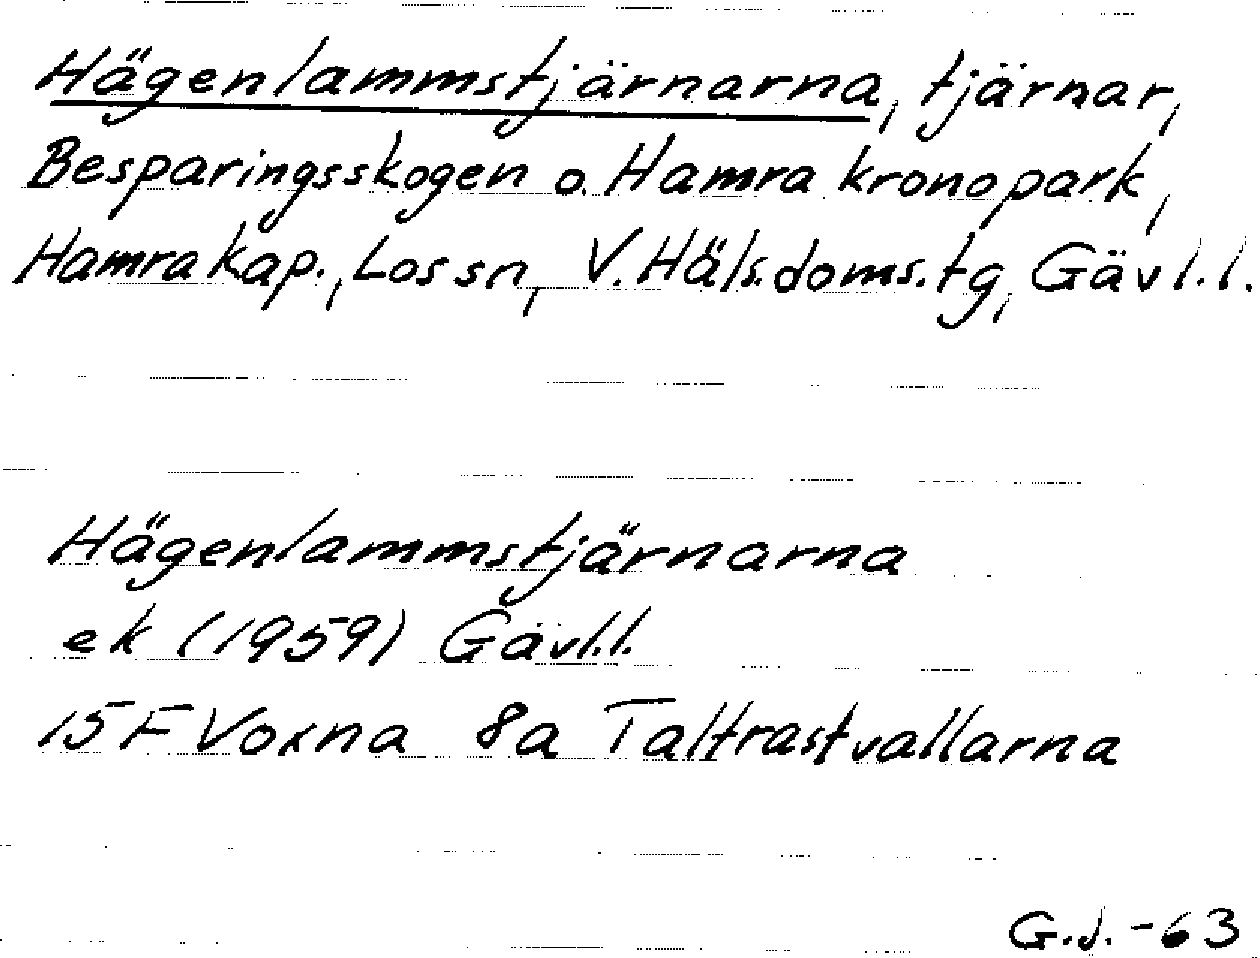 Hägenlammstjärnarna, tjärnar,
Besparingsskogen o. Hamra kronopark,
Hamra kap., Los sn, V. Häls. doms. tg, Gävl. l.
Hägenlammstjärnarna
ek (1959) Gävl. l.
15 F Voxna 8a Taltrastvallarna
G.J. -63